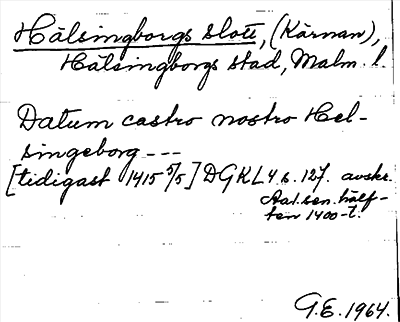 Hälsingborgs slott, (Kärnan),
Hälsingborgs stad, Malm. l.
Datum castro nostro Hel-
singeborg ---
[tidigast 1415 5/5] DGKL 4 s. 127. avskr.
Aal. sen. hälf-
ten 1400-t.
G.E. 1964.